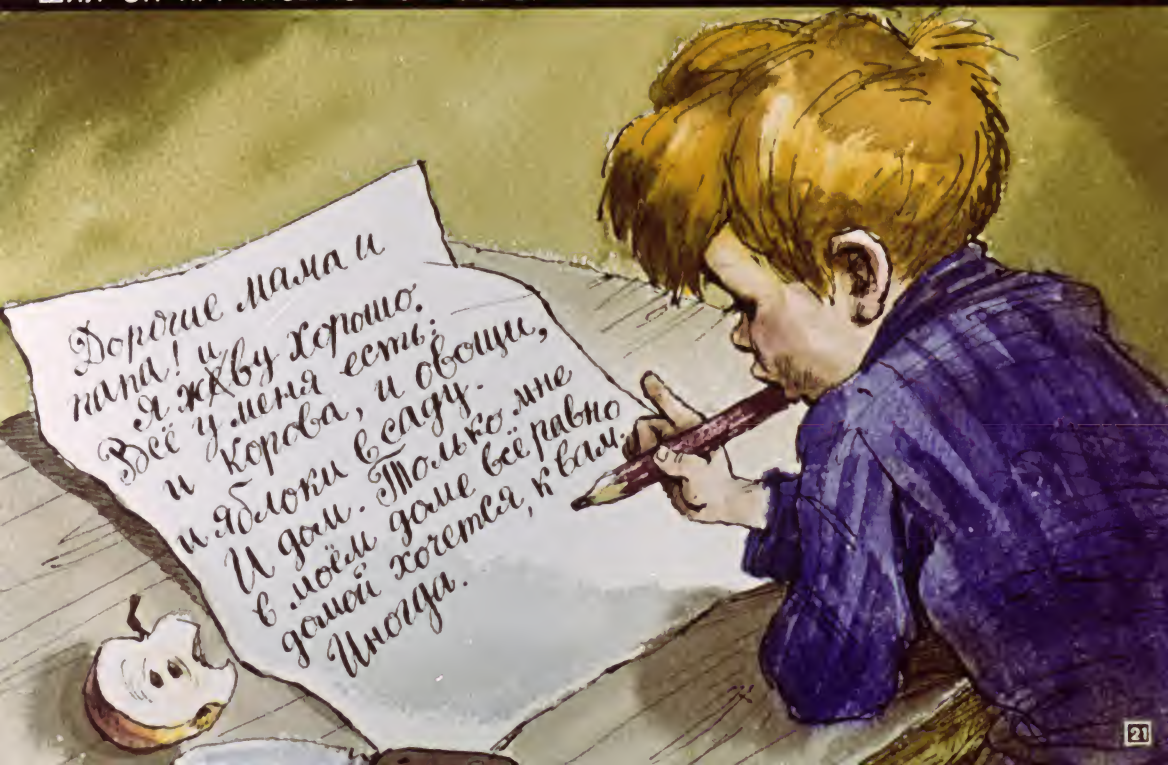 Дорогие мама и
папа! и
Я жву хорошо.
Всё у меня есть:
и корова, и овощи,
и яблоки в саду.
И дом. Только мне
в моём доме всё равно
домой хочется, к вам.
Иногда.
21